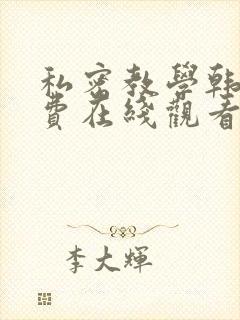 私密教學韩
費在綫觀看
李大輝